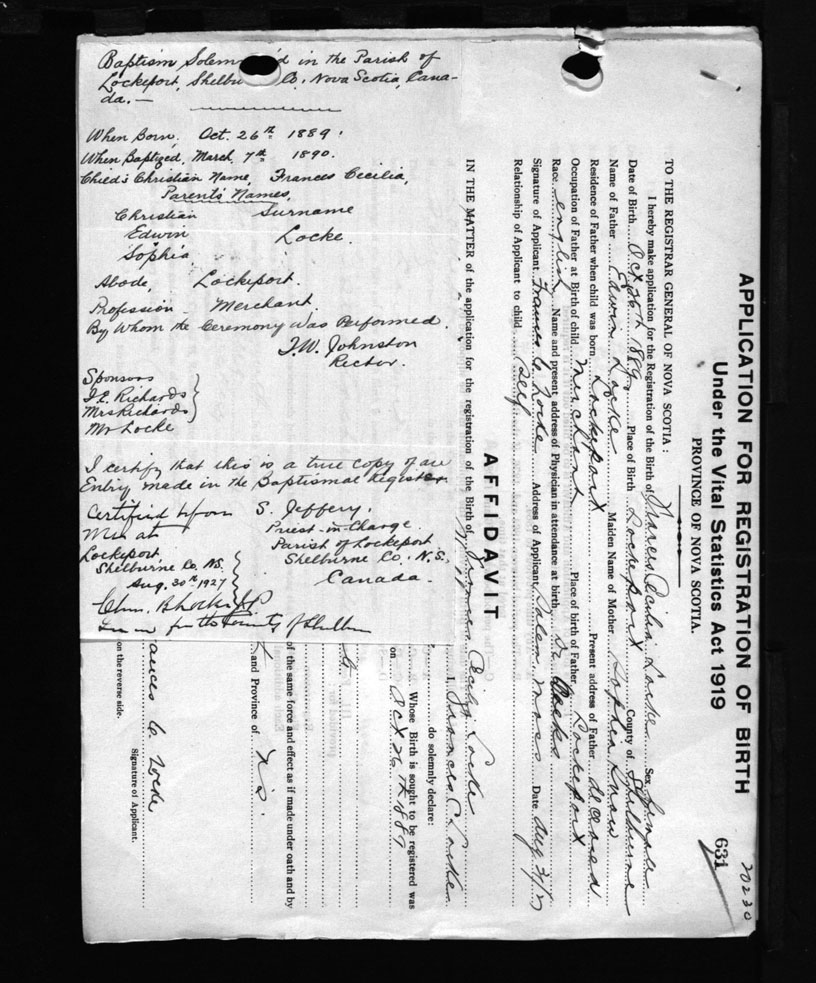 Baptism Solem d in the Parish of
Lockeport, Shelbu Co. Nova Scotia, Cana-
da. —
When Born, Oct. 26th 1889.
When Baptized, March 7th 1890.
Child's Christian Name, Frances Cecilia,
Parents Names,
Christian Surname
Edwin Locke.
Sophia
Abode, Lockeport.
Profession Merchant
By Whom the Ceremony was Performed.
T.W. Johnston
Rector.
Sponsors
Richards
Mrs Richards
Mr Locke
I certify that this is a true copy of an
Entry made in the Baptismal Register
Certified S. Jeffery,
at Priest-in-Charge.
Lockeport Parish of Lockeport
Shelburne Co. NS. Shelburne Co. N.S.,
Aug. 30th 1927 Canada.
Locke JP
for the County of
20230
631
APPLICATION FOR REGISTRATION OF BIRTH
Under the Vital Statistics Act 1919
PROVINCE OF NOVA SCOTIA.
TO THE REGISTRAR GENERAL OF NOVA SCOTIA:
I hereby make application for the Registration of the Birth of Frances Cecilia Locke Sex Female
Date of Birth Oct 26th 1889 Place of Birth Lockeport County of Shelburne
Name of Father Edwin Locke Maiden Name of Mother Sophia
Residence of Father when child was born Lockeport Present address of Father deceased
Occupation of Father at Birth of child Merchant Place of birth of Father Lockeport
Race English Name and present address of Physician in attendance at birth Dr
Signature of Applicant Frances C Locke Address of Applicant Salem Mass Date Aug 31/27
Relationship of Applicant to child Self
AFFIDAVIT
IN THE MATTER of the application for the registration of the Birth of Frances Cecilia Locke
I, Frances C Locke
do solemnly declare:
Whose Birth is sought to be registered was
on Oct 26th 1889
of the same force and effect as if made under oath and by
and Province of N.S.
ances C Locke
Signature of Applicant.
on the reverse side.